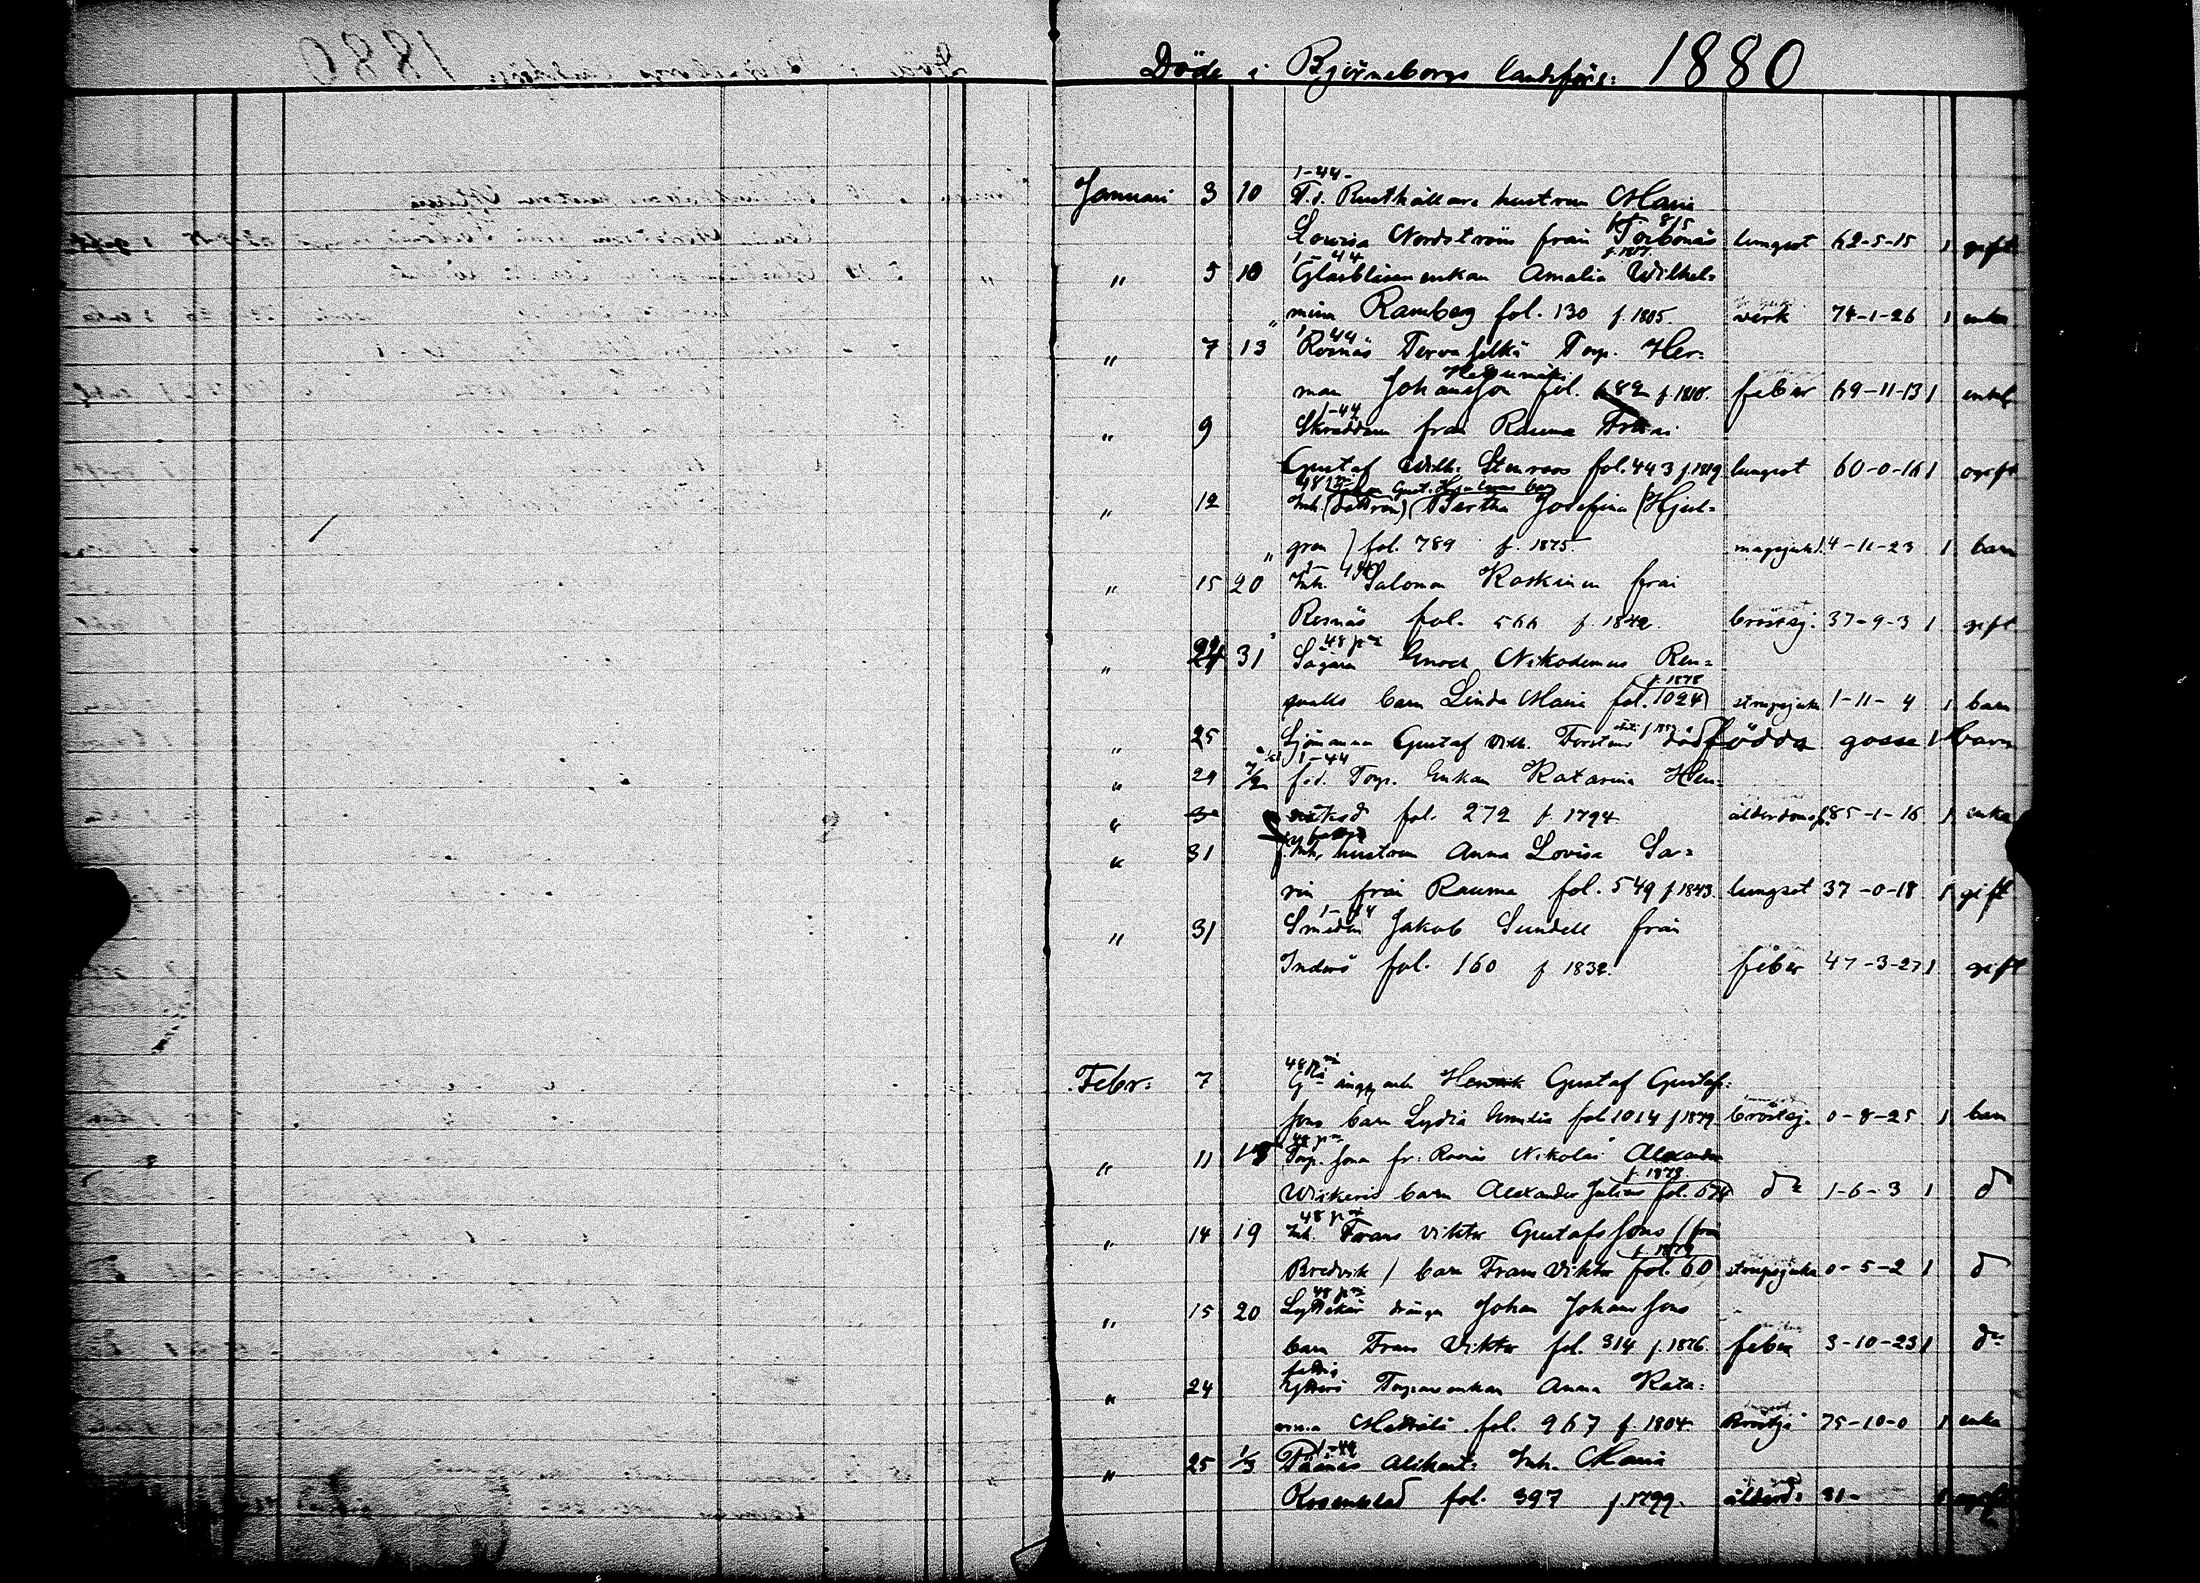 Döde i Björneborgs landsförs: 1880
1-44-
Januari 3 10 F.d. Rusthållare hustrun Maria
815
Lovisa Nordström från Torbonäs lungsot 62-5-15 1 gift
1-44 f. 1817.
" 5 10 Glasblåsareenkan Amalia Wilhel=
mina Ramberg fol. 130 f. 1805. värk 74-1-26 1 enka
1-44
" 7 13 Rosnäs Torp. Her=
man Johansson fol. 682 f. 1810. feber 69-11-13 1 enkl.
1-44
" 9 Skräddare från Rauma
Gustaf Wilh. Stenroos fol. 443 f. 1819 lungsot 60-0-16 1 ogift
" 12 Inh. Bertha Josefina (Hjul=
" gren) fol. 789 f. 1875. magsjukd. 4-11-23 1 barn
" 15 20 Inh. Salomon Koskinen från
Rosnäs fol. 566 f. 1842. bröstsj. 37-9-3 1 gift
48 p
" 24 31 Sågaren Enoch Nikodemus Ren=
f. 1878
qvalls barn Linda Maria fol. 1024 strupsjuka 1-11-4 1 barn
" 25 Sjömannen Gustaf Wilh. dödfödda gosse 1 barn
1-44
" 29 7/2 f.d. Torp. Enkan Katarina Hen=
" riksd fol. 272 f. 1794 ålderdomsf. 85-1-16 1 enka
" 31 Inh. hustrun Anna Lovisa Sa=
rin från Rauma fol. 549 f. 1843. lungsot 37-0-18 1 gift
1-44
" 31 Smeden Jakob Sundell från
Inderö fol. 160 f 1832. feber 47-3-27 1 gift
48 p
Febr: 7 Henrik Gustaf Gustafs=
sons barn Lydia Emilia fol 1014 f 1879. bröstsj. 0-8-25 1 barn
48 p
" 11 Torp. sonen fr. Rosnäs Nikolai Alexander
f. 1878
barn Alexander Julius fol. d:o 1-6-3 1 d:o
48 p
" 14 19 Inh. Frans Viktor Gustafssons (från
f. 1879
Bredvik) barn Frans Viktor fol. 60 strupsjuka 0-5-2 1 d:o
48 p
" 15 20 Lyttskär drängen Johan Johanssons
barn Frans Viktor fol. 314 f. 1876. feber 3-10-23 1 d:o
" 24 Torpareenkan Anna Kata=
rina fol. 967 f 1804. Bröstsj 75-10-0 1 enka
1-44
" 25 1/3 Inh. Maria
Rosenblad fol. 397 f. 1799. ålderd: 81- 1 ogift